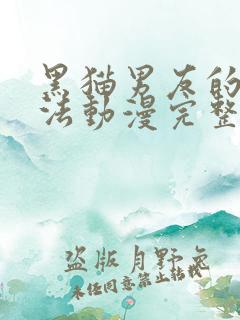 黑猫男友的
法動漫完整
盜版月野兔
未任同意禁止转载